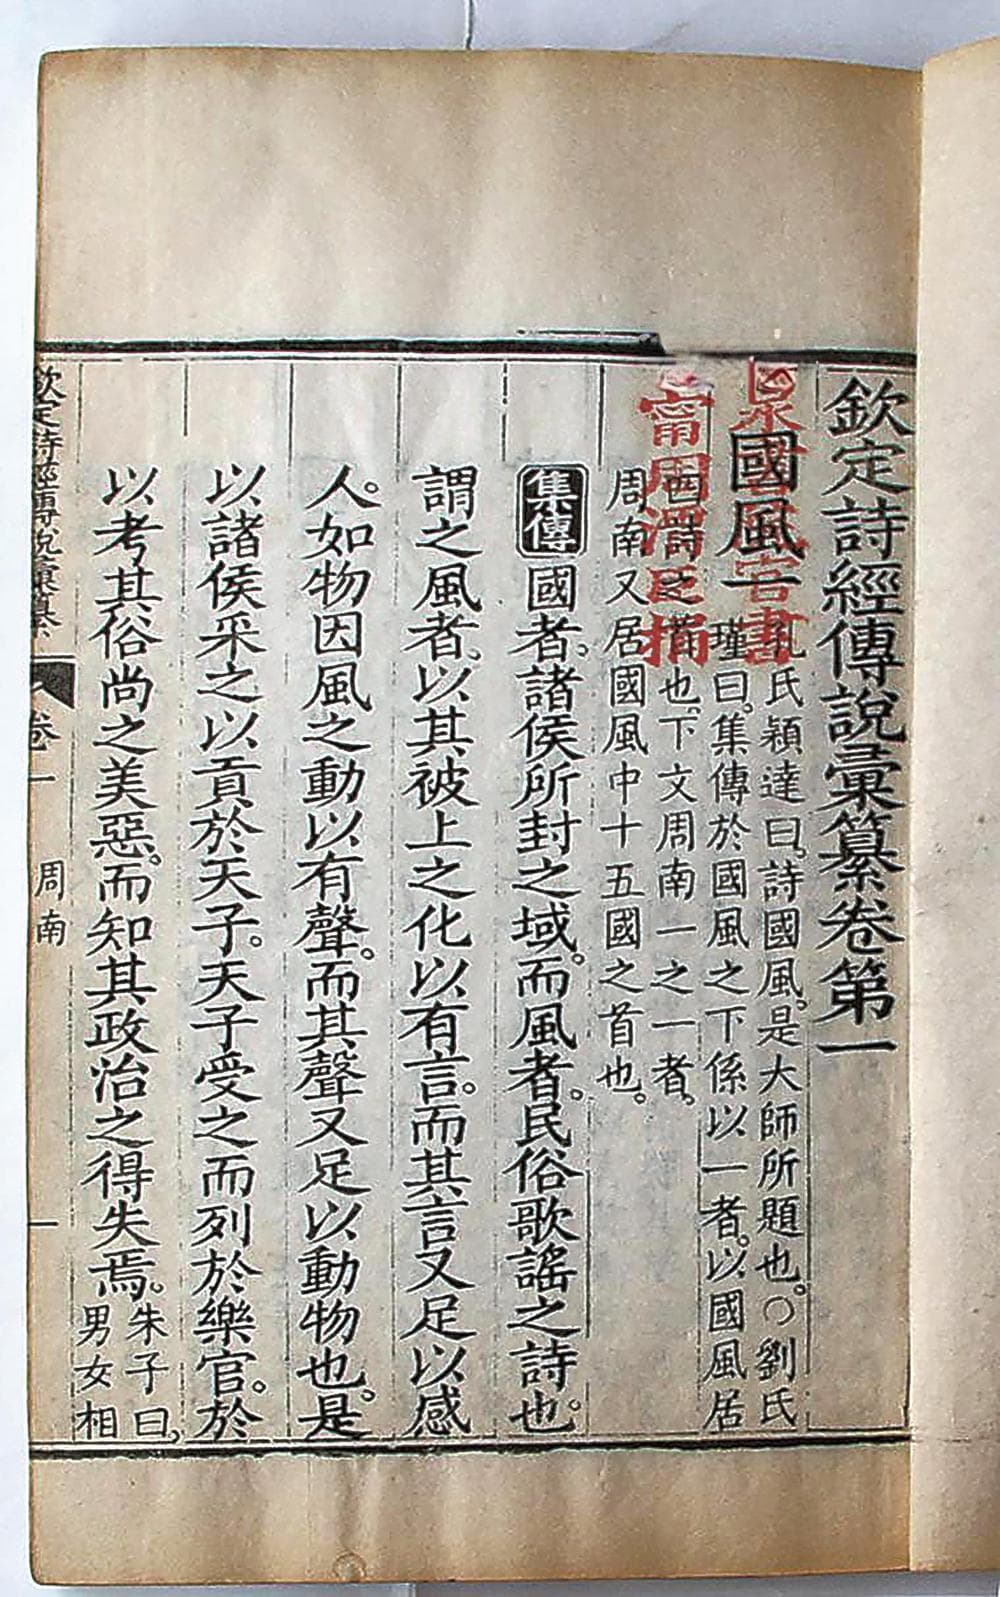 欽定詩經傳說彙纂卷第一
國風一
孔氏穎達曰。詩國風。是大師所題也。○劉氏
瑾曰。集傳於國風之下係以一者。以國風居
四詩之首也。下文周南一之一者。
周南又居國風中十五國之首也。
集傳 國者。諸侯所封之域。而風者。民俗歌謠之詩也。
謂之風者。以其被上之化以有言。而其言又足以感
人。如物因風之動以有聲。而其聲又足以動物也。是
以諸侯采之以貢於天子。天子受之而列於樂官。於
以考其俗尚之美惡。而知其政治之得失焉。
朱子曰。
男女相
欽定詩經傳說彙纂
卷一
周南
一
書
甯
周渭臣捐